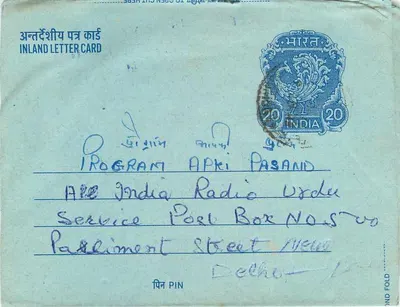 अन्तर्देशीय पत्र कार्ड
INLAND LETTER CARD
भारत
20 INDIA 20
PROGRAM APKI PASAND
All India Radio Urdu
Service Post Box No 500
Parliment Street New
Delhi
पिन PIN